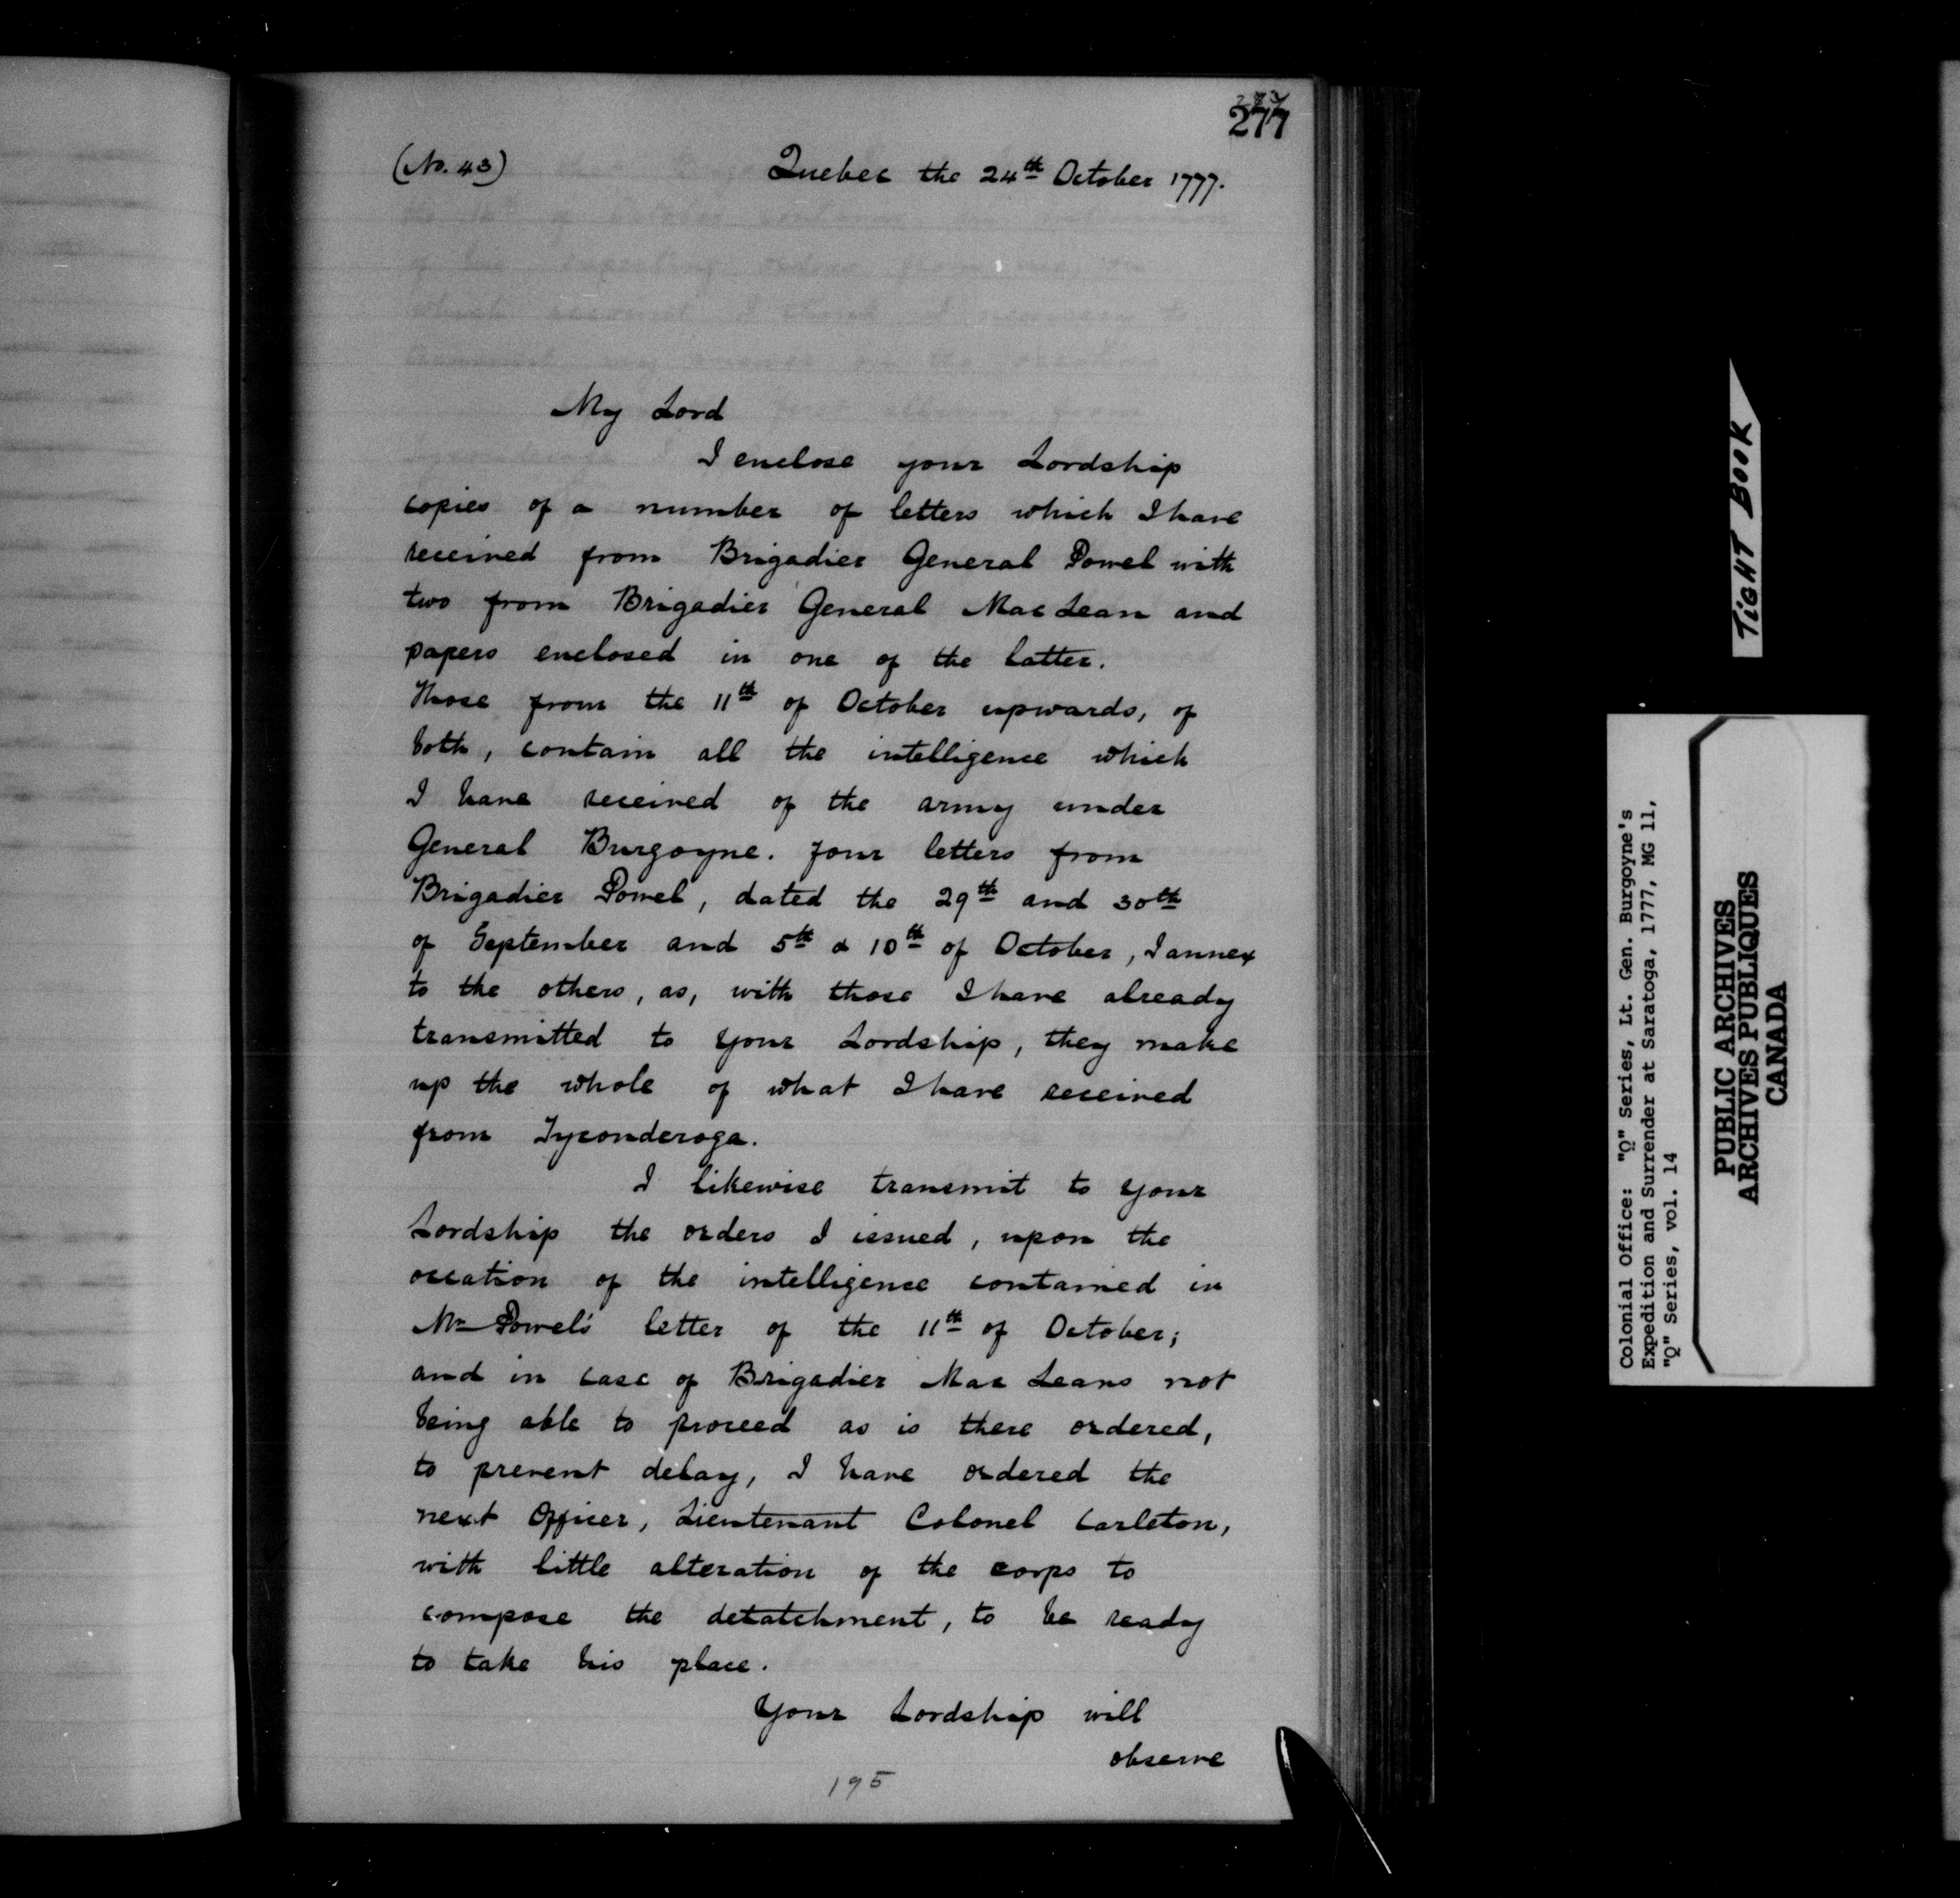 277
(No. 43) Quebec the 24th October 1777.
My Lord
I enclose your Lordship
copies of a number of letters which I have
received from Brigadier General Powel with
two from Brigadier General Mac Lean and
papers enclosed in one of the latter.
Those from the 11th of October upwards, of
both, contain all the intelligence which
I have received of the army under
General Burgoyne. four letters from
Brigadier Powel, dated the 29th and 30th
of September and 5th & 10th of October, I annex
to the others, as, with those I have already
transmitted to your Lordship, they make
up the whole of what I have received
from Tyconderoga.
I likewise transmit to your
Lordship the orders I issued, upon the
occation of the intelligence contained in
Mr Powel's letter of the 11th of October;
and in case of Brigadier Mac Leans not
being able to proceed as is there ordered,
to prevent delay, I have ordered the
next Officer, Lieutenant Colonel Carleton,
with little alteration of the corps to
compose the detatchment, to be ready
to take his place.
Your Lordship will
observe
195
TIGHT BOOK
Colonial Office: "Q" Series, Lt. Gen. Burgoyne's
Expedition and Surrender at Saratoga, 1777, MG 11,
"Q" Series, vol. 14
PUBLIC ARCHIVES
ARCHIVES PUBLIQUES
CANADA